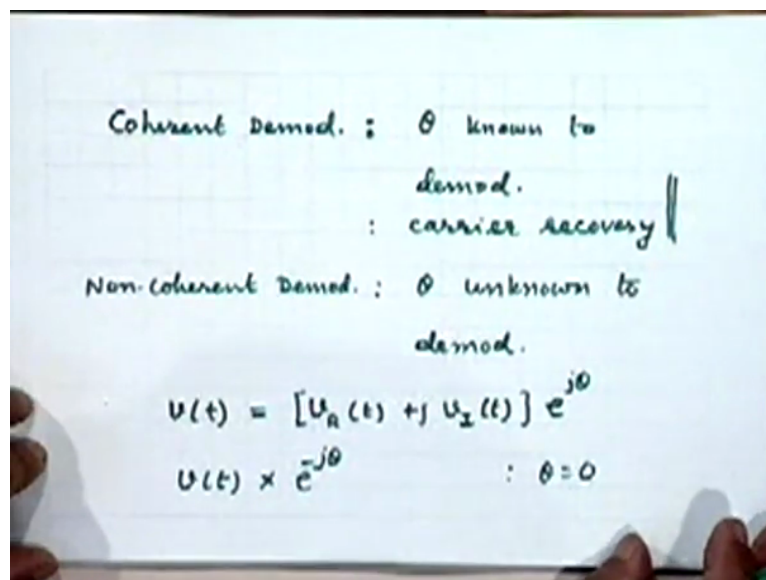 Coherent Demod. : θ known to
demod.
: carrier recovery ||
Non-Coherent Demod. : θ unknown to
demod.
υ(t) = [υ_R(t) + j υ_I(t)] e^{jθ}
υ(t) × e^{-jθ} : θ = 0